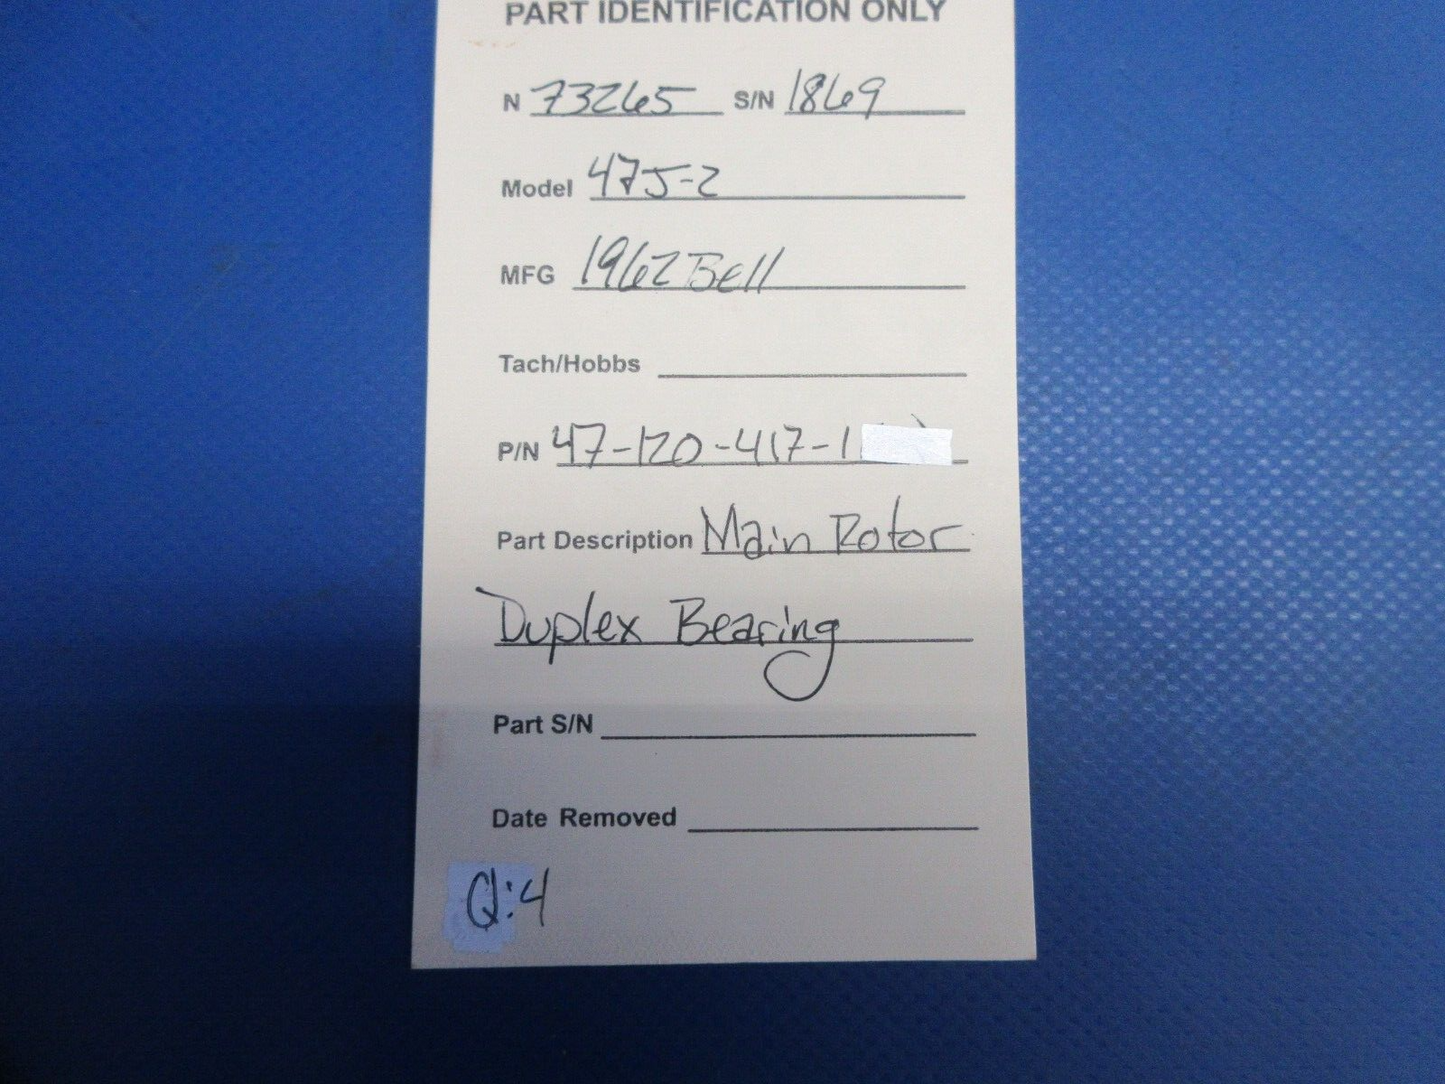 PART IDENTIFICATION ONLY
N 73265 S/N 1869
Model 47J-2
MFG 1962 Bell
Tach/Hobbs
P/N 47-120-417-1
Part Description Main Rotor
Duplex Bearing
Part S/N
Date Removed
Q:4